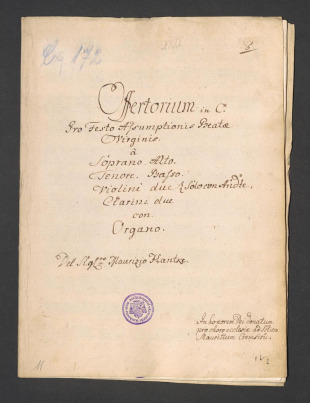 Lq 172
8.
Offertorium in C.
Pro Festo Assumptionis Beatæ
Virginis.
à
Soprano. Alto.
Tenore. Basso.
Violini due
Clarini due
con
Organo.
Del Sig:re Maurizio Hantke
In honorem Dei donatum
pro choro ecclesiæ ad
Mauritium Cremsirii.